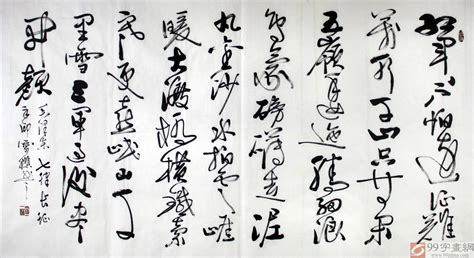 红军不怕远征难
万水千山只等闲
五岭逶迤腾细浪
乌蒙磅礴走泥
丸金沙水拍云崖
暖大渡桥横铁索
寒更喜岷山千
里雪三军过后尽
开颜 毛泽东 七律 长征
99字畫網